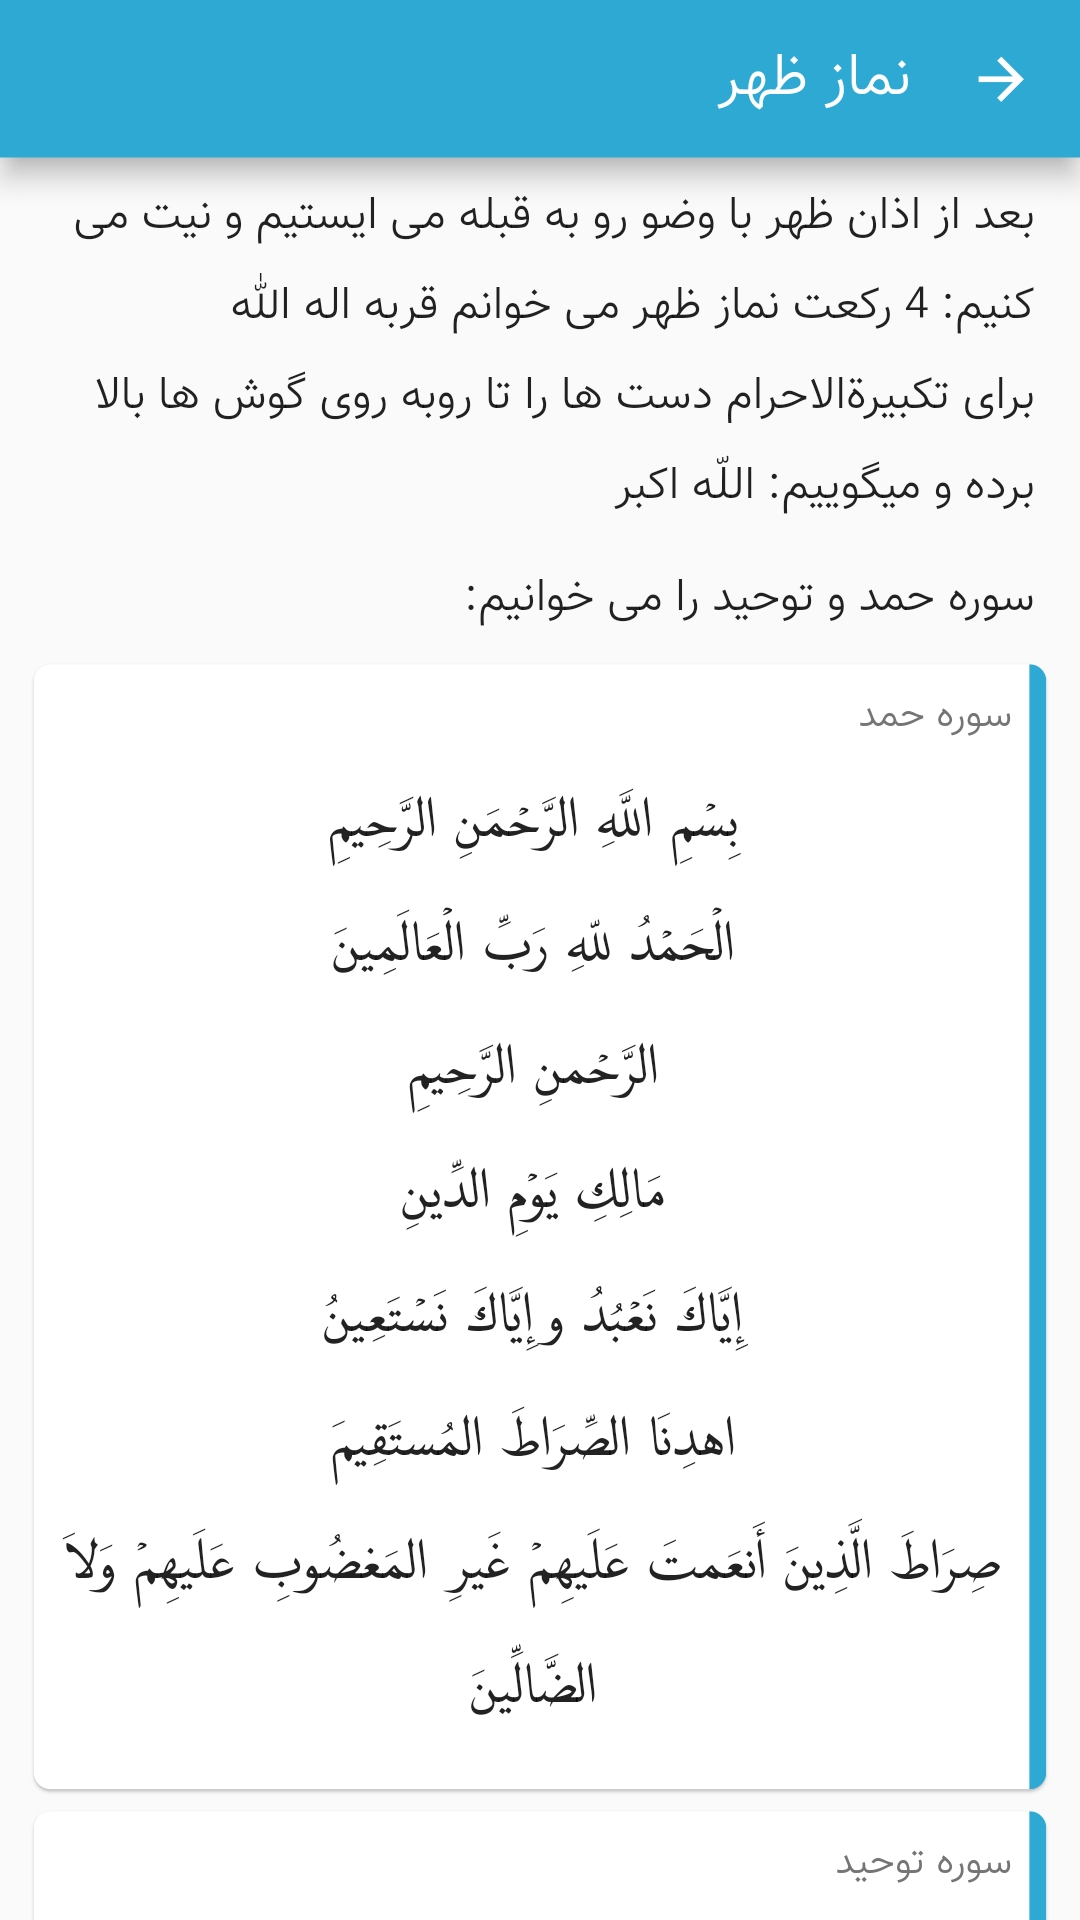 نماز ظهر
بعد از اذان ظهر با وضو رو به قبله می ایستیم و نیت می
کنیم: 4 رکعت نماز ظهر می خوانم قربه اله الله
برای تکبیرةالاحرام دست ها را تا روبه روی گوش ها بالا
برده و میگوییم: اللّه اکبر
سوره حمد و توحید را می خوانیم:
سوره حمد
بِسْمِ اللَّهِ الرَّحْمَنِ الرَّحِیمِ
الْحَمْدُ للّهِ رَبِّ الْعَالَمِینَ
الرَّحْمنِ الرَّحِیمِ
مَالِكِ یَوْمِ الدِّینِ
إِیَّاكَ نَعْبُدُ وإِیَّاكَ نَسْتَعِینُ
اهدِنَا الصِّرَاطَ المُستَقِیمَ
صِرَاطَ الَّذِینَ أَنعَمتَ عَلَیهِمْ غَیرِ المَغضُوبِ عَلَیهِمْ وَلاَ
الضَّالِّینَ
سوره توحید